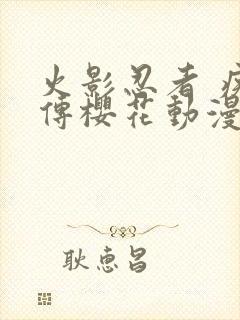 火影忍者 疾
傳櫻花動漫
耿惠昌